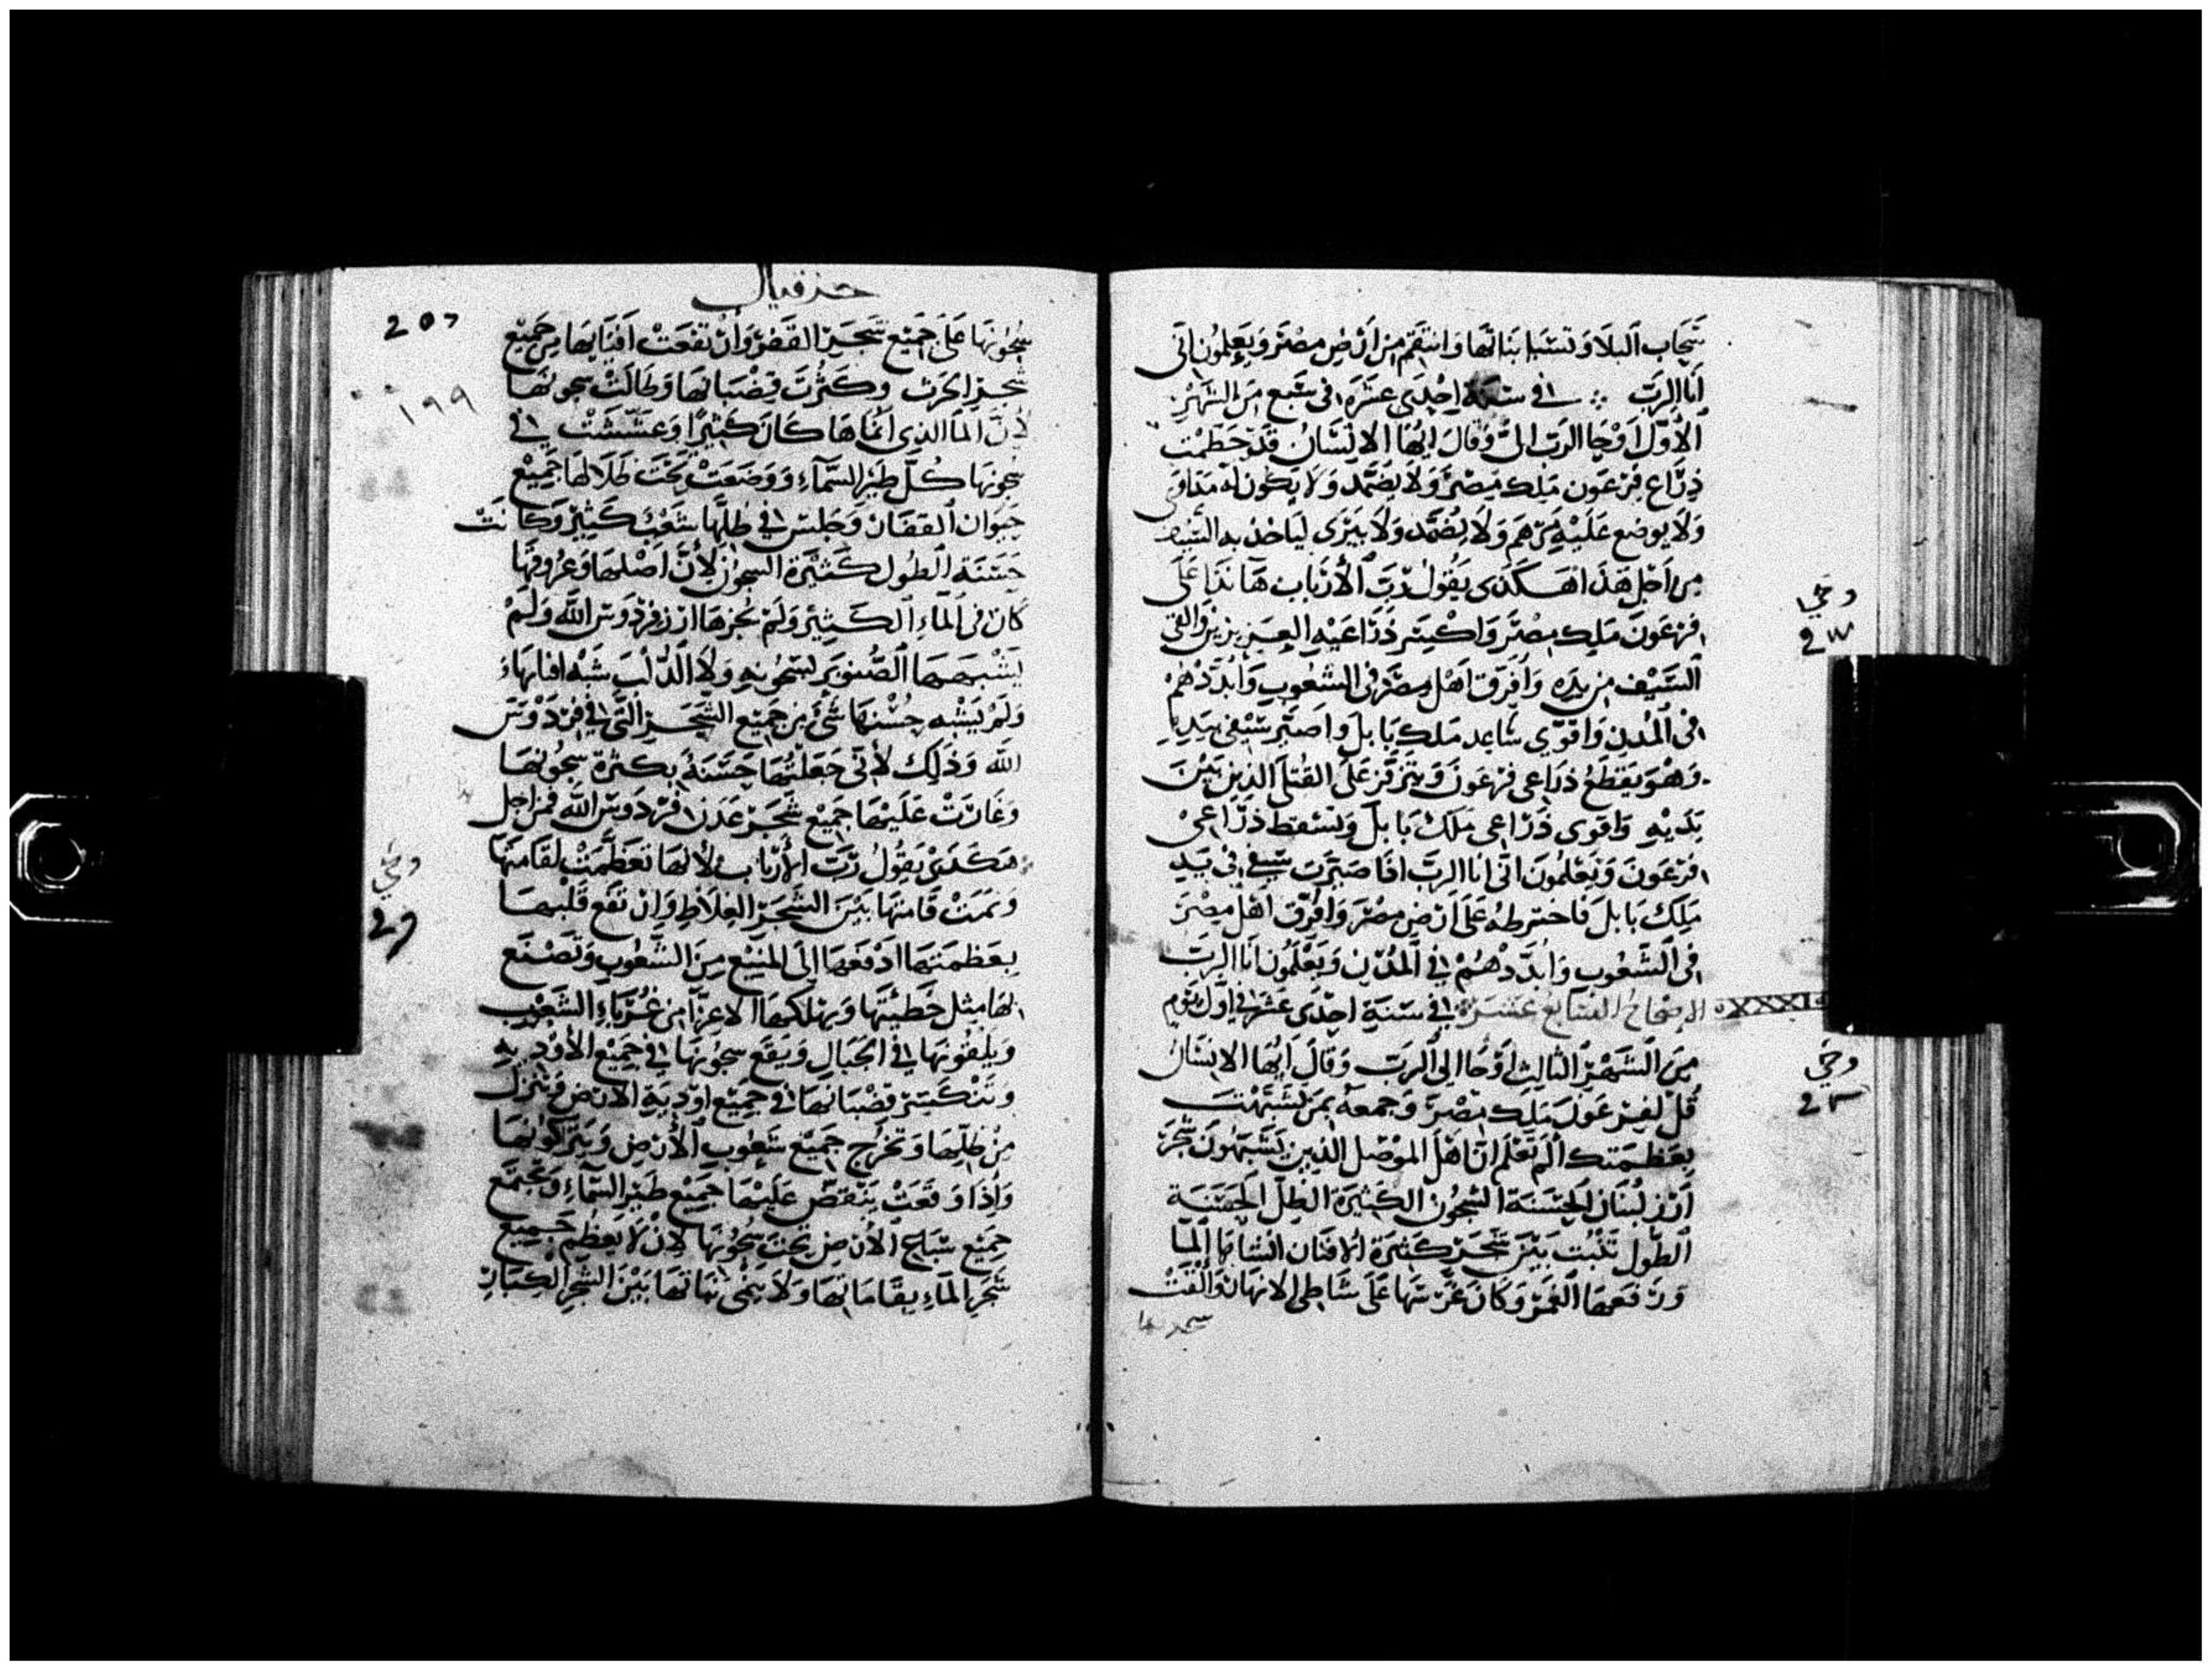 سحاب البلا وتسبا بناتها وانتقم من ارض مصر ويعلمون اني
انا الرب في سنة احدى عشرة في سبع من الشهر
الأول اوحا الرب الى وقال ايها الانسان قد حطمت
ذراع فرعون ملك مصر ولا يضمد ولا يكون له مداوى
ولا يوضع عليه مرهم ولا يضمد ولا يبرى لياخذ به السيف
من اجل هذا هكذى يقول رب الأرباب هانذا على
فرعون ملك مصر واكسر ذراعيه العزيزين والقى
السيف من يده وافرق اهل مصر في الشعوب وابددهم
في المدن واقوي ساعد ملك بابل واصير سيفي بيده
وهو يقطع ذراعي فرعون ويتزفز على القتلى الذين بين
يديه واقوى ذراعي ملك بابل وتسقط ذراعي
فرعون ويعلمون اني انا الرب اذا صيرت سيفي في يد
ملك بابل فاخترطه على ارض مصر وافرق اهل مصر
في الشعوب وابددهم في المدن ويعلمون انا الرب
الاصحاح السابع عشر في سنة احدى عشر في اول يوم
من الشهر الثالث اوحا الى الرب وقال ايها الانسان
قل لفرعون ملك مصر وجمعه بمن تشبهت
بعظمتك الم تعلم ان اهل الموصل الذين يشبهون شجر
ارز لبنان الحسنة السجون الكثيرة الظل الحسنة
الطول تنبت بين شجر كثيرة الافنان انشاها الما
ورفعها الغمر وكان غرسها على شاطى الانهار والقت
سجونها
وحي
وحي
حزقيال
207
١٩٩
سجونها على جميع شجر القصر وارتفعت افنانها من جميع
شجر الحرث وكثرت قضبانها وطالت سجونها
لأن الما الذي انماها كان كثيرا وعششت في
سجونها كل طير السماء ووضعت تحت ظلالها جميع
حيوان القفار وجلس في ظلها شعب كثير وكانت
حسنة الطول كثيرة السجون لأن اصلها وعروقها
كان في الماء الكثير ولم يخزها ارز فردوس الله ولم
يشبهها الصنوبر بسجونه ولا الدلب شبه افنانها
ولم يشبه حسنها شئ من جميع الشجر التى في فردوس
الله وذلك لأني جعلتها حسنة بكثرة سجونها
وغارت عليها جميع شجر عدن فردوس الله فمن اجل
هكذى يقول رب الأرباب لأنها تعظمت لقامتها
ونمت قامتها بين الشجر الغلاظ وارتفع قلبها
بعظمتها ادفعها الى المنيع من الشعوب وتصنع
لها مثل خطيئتها ويهلكها الاعزا من غرباء الشعوب
ويلقونها في الجبال ويقع سجونها في جميع الأودية
وتنكسر قضبانها في جميع اودية الارض وينزل
من ظلها وتخرج جميع شعوب الأرض ويتركونها
واذا وقعت ينقض عليها جميع طير السماء وتجتمع
جميع سباع الأرض تحت سجونها لان لا يعظم جميع
شجر الماء بقاماتها ولا ينمى نباتها بين الشجر الكبار
وحي